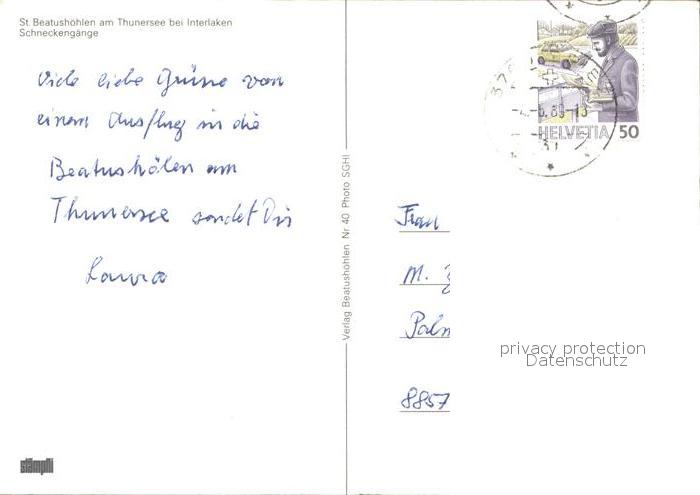 St. Beatushöhlen am Thunersee bei Interlaken
Schneckengänge
Viele liebe Grüsse von
einem Ausflug in die
Beatushölen am
Thunersee sendet Dir
Laura
stämpfli
Verlag Beatushöhlen Nr 40 Photo SGHI
HELVETIA 50
Frau
M.
Palm
8857
privacy protection
Datenschutz